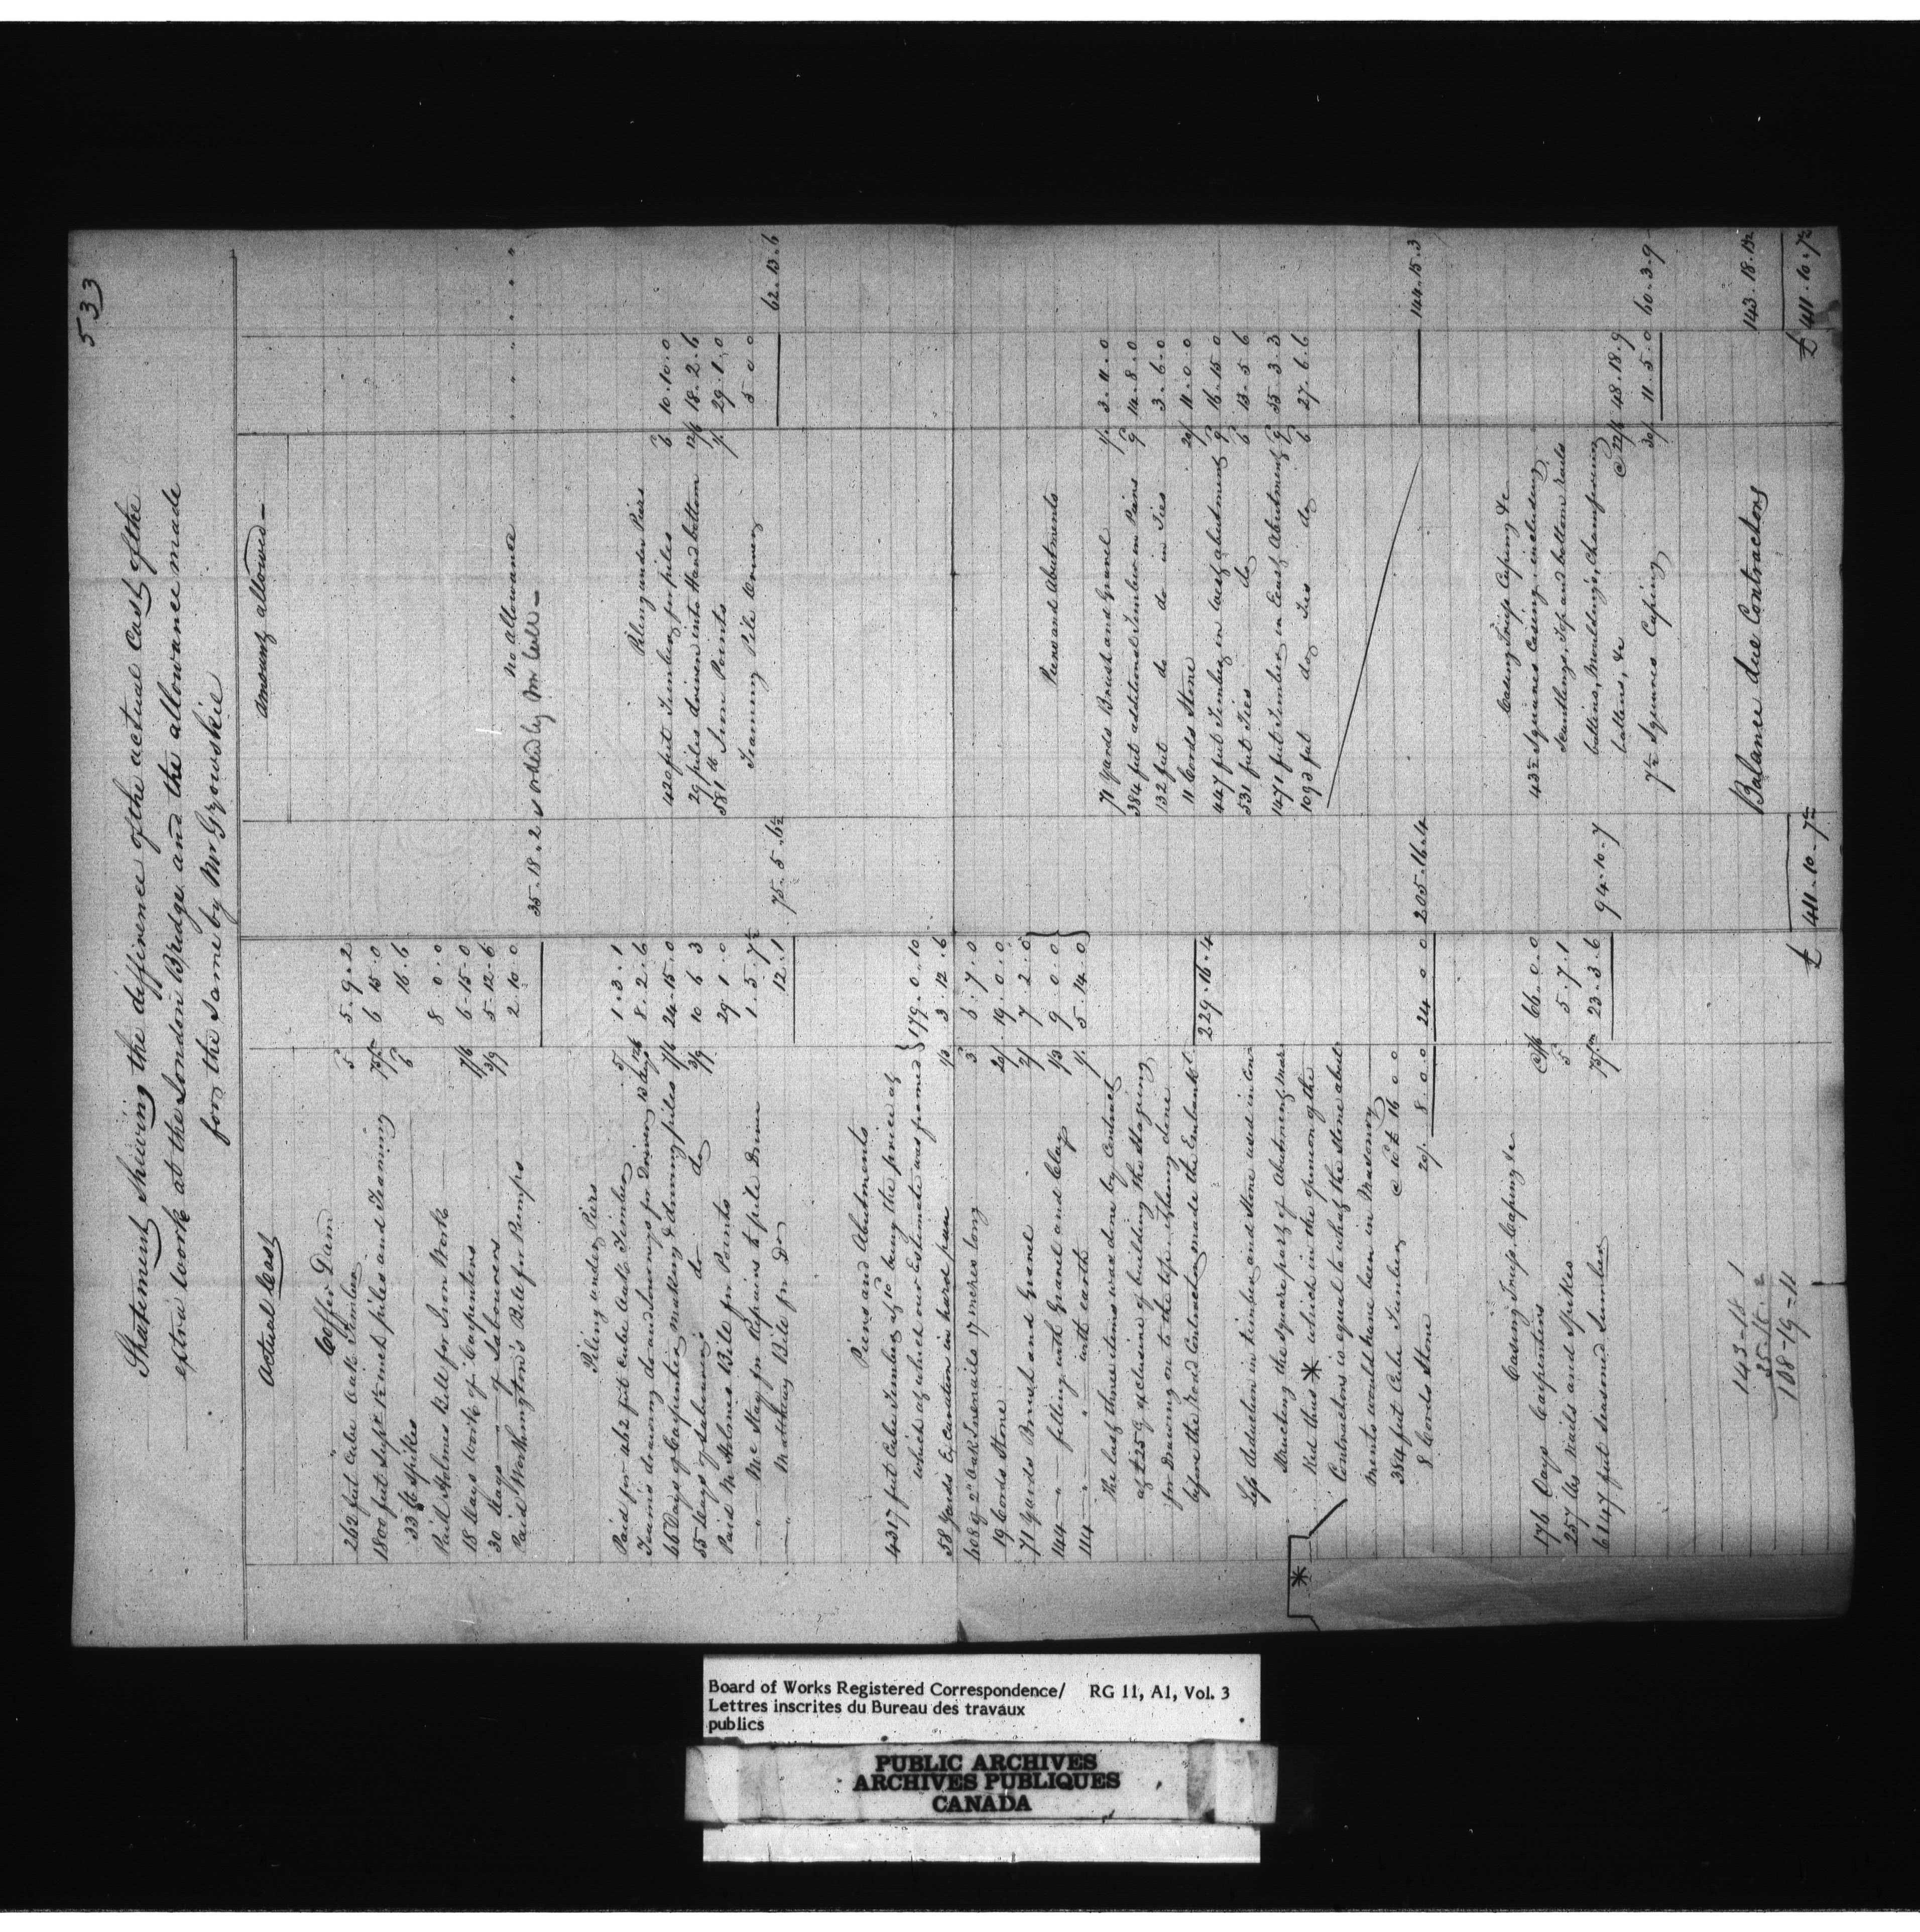 533
Statement Shewing the difference of the actual Cost of the
extra work at the London Bridge and the allowance made
for the same by Mr Gzowskie
Actual Cost
Coffer Dam
262 feet Cube Oak Timber 5d 5.9.2
1800 feet Supl 1½ inch piles and Teaming 75/- 6 15.0
33 lb Spikes 6d 16.6
Paid Holmes Bill for Iron Work 8.0.0
18 days work of Carpenters 7/6 6.15.0
30 days " of Labourers 3/9 5.12.6
Paid Worthington's Bill for Pumps 2 10 0
35.18.2
Piling under Piers
Paid for 462 feet Cube Oak Timber 1.3.1
Teams drawing do and Journeys for Driver 13 days 12/6 8.2.6
66 Days of Carpenter making & driving piles 7/6 24.15.0
55 days of labouring do do 3/9 10 6 3
Paid M Holmes Bill for Points 29 1 0
" Mc Stay for Repairs to pile Driver 1.5.7½
" Matthew Bill for Do 12.1
75.5.6½
Piers and Abutments
4317 feet Cube Timber at 10d being the price at
which our Estimate was framed 179.0.10
58 Yards Excavation in hard pan 1/3 3.12.6
608 of 2" Oak Treenails 17 inches long 6.7.0
19 Cords Stone 20/ 19.0.0
71 Yards Brush and Gravel 2/ 7 2.0
144 " filling with Gravel and Clay 1/3 9 0 0
114 " " with earth 1/- 5.14 0
The last three items was done by Contract
at £25 exclusive of building the Staging
for Drawing on to the top. It being done
before the Road Contractor made the Embankt
229.16.4
Less deduction in timber and Stone used in Con-
structing the square part of Abutment, mar-
ked thus * which in the opinion of the
Contractors is equal to what the Stone abut-
ments would have been in Masonry
384 feet Cube Timber @ 10d £ 16 0 0
8 Cords Stone 20/. 8.0.0 24 0 0 205.16.4
*
Casing Truss, Caping &c
176 Days Carpenters @7/6 66.0.0
257 lbs Nails and Spikes 5d 5.7.1
6147 feet seasoned Lumber 75/- 23.3.6
94.10.7
£ 411.10.7½
143-18 1
35-18 2
108-19-11
Amount allowed
no allowance
as ordered by Mr
Piling under Piers
420 feet Timber for piles 6d 10.10.0
29 piles driven into Hard bottom 12/6 18.2.6
581 lb Iron Points 1/ 29.1.0
Teaming Pile Driver 5 0 0
62.13.6
Piers and Abutments
71 Yards Brush and Gravel 1/- 3.11.0
384 feet additional Timber in Piers 9d 14.8.0
132 feet do do in Ties 6d 3.6.0
11 Cords Stone 20/ 11.0.0
447 feet Timber in West Abutment 9d 16.15 0
531 feet Ties do 6 13.5 6
1471 feet Timber in East Abutment 9d 55.3.3
1093 feet do Ties do 6 27.6.6
144.15.3
Casing Truss Caping &c
43½ Squares Casing, including
Scantlings, Top and bottom rails
battins, Mouldings, Champering
battens, &c @ 22/6 48.18.9
7½ Squares Caping 30/ 11.5.0 60.3.9
Balance due Contractors 143.18.1½
£ 411.10.7½
Board of Works Registered Correspondence/ RG 11, A1, Vol. 3
Lettres inscrites du Bureau des travaux
publics
PUBLIC ARCHIVES
ARCHIVES PUBLIQUES
CANADA